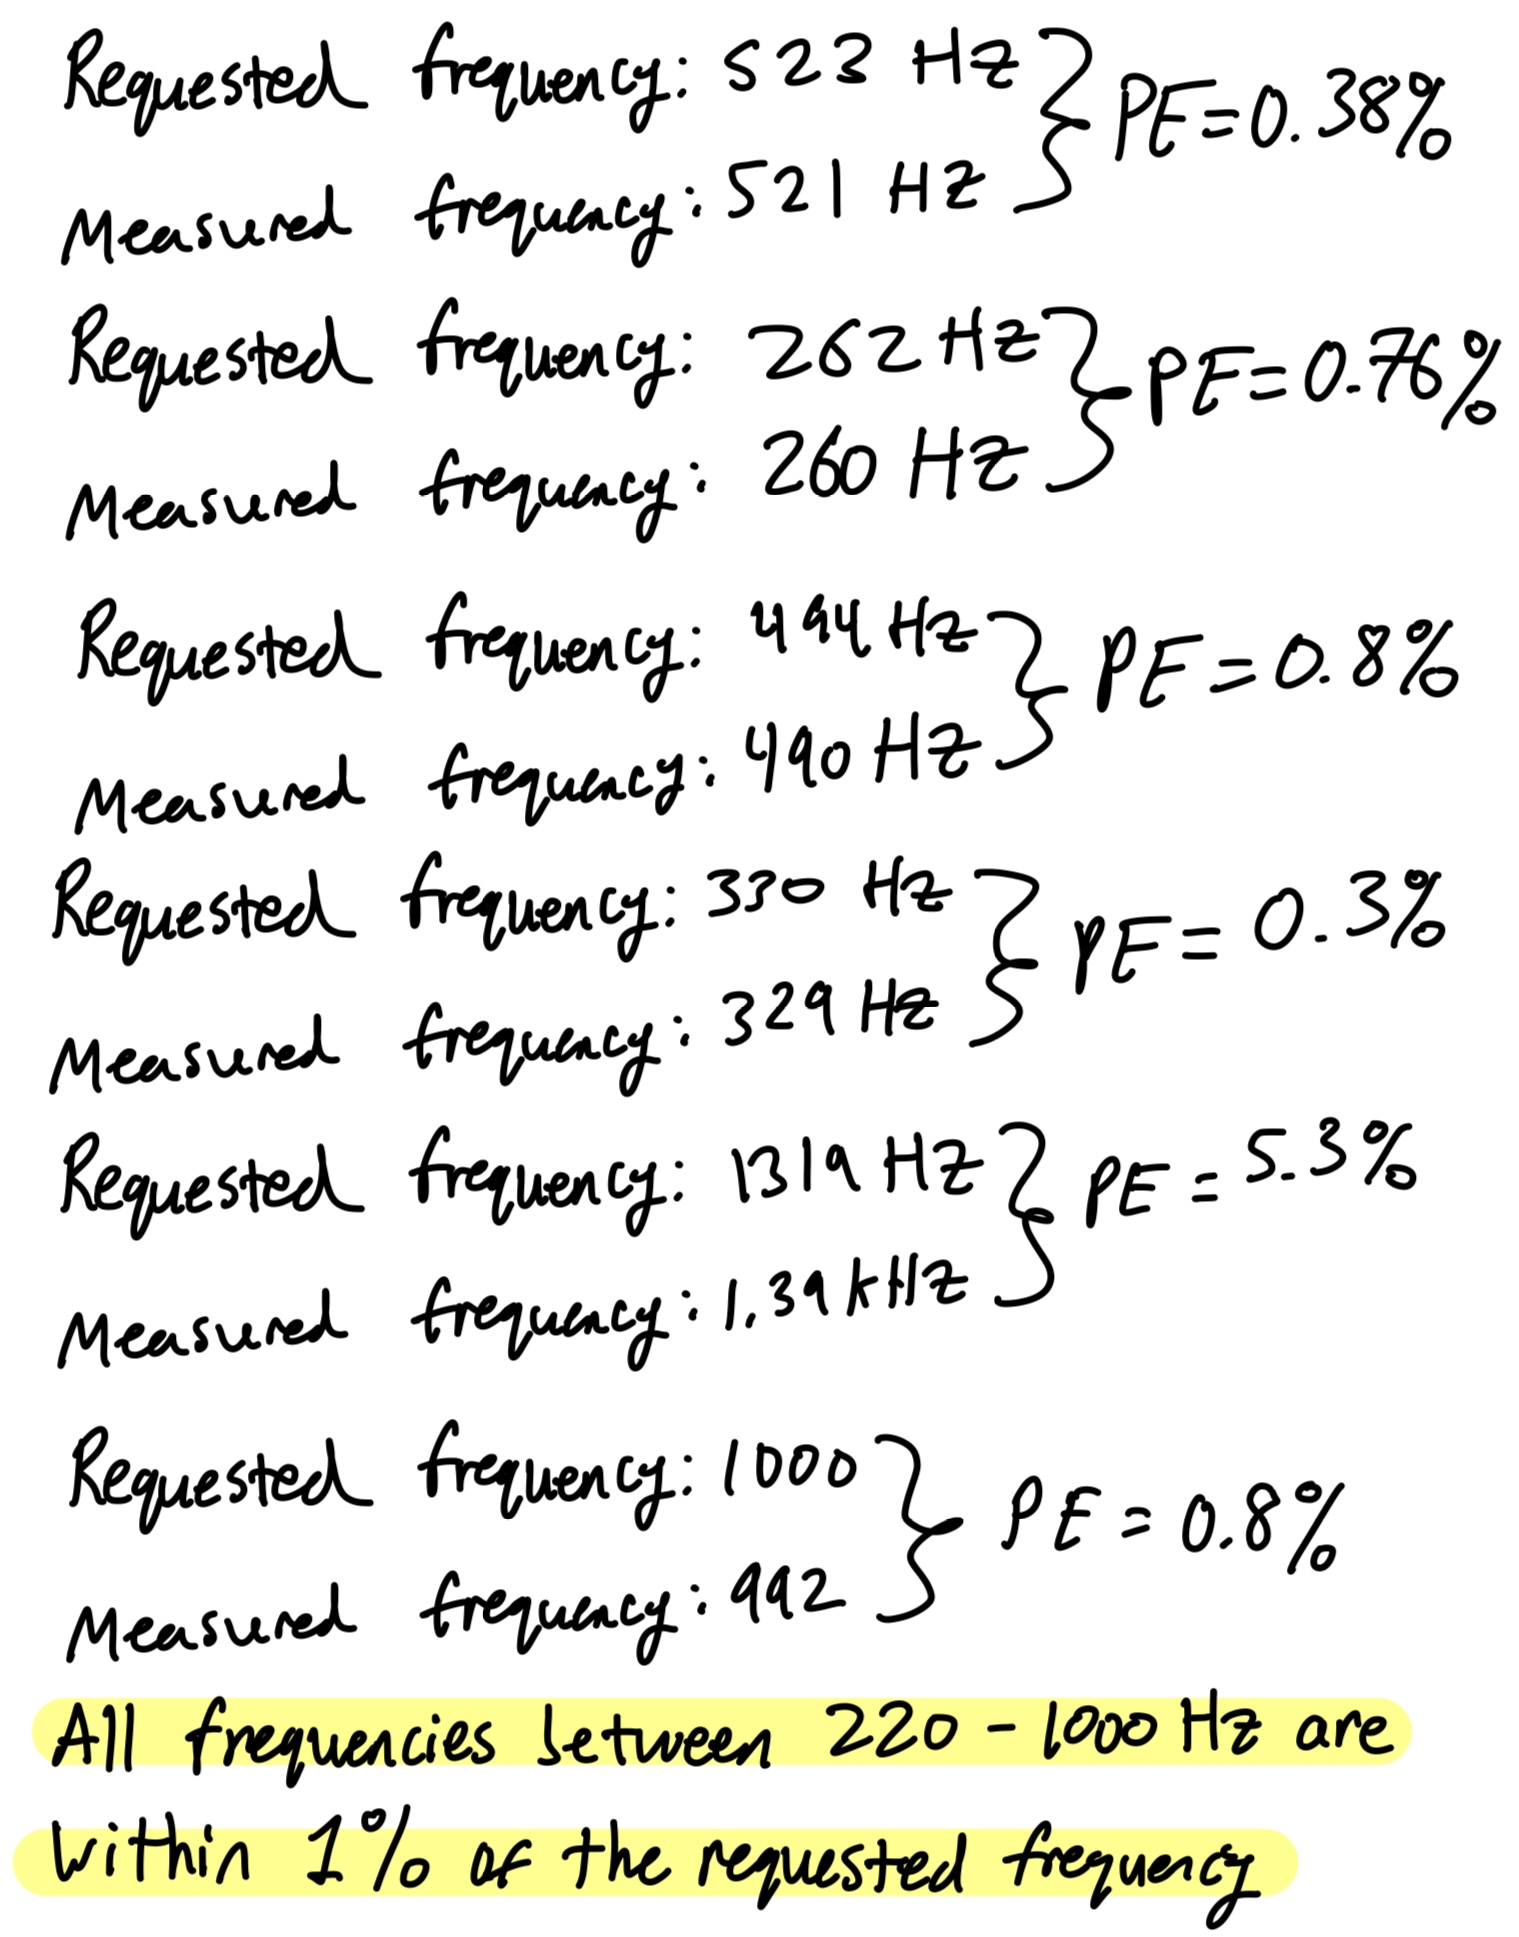 Requested frequency: 523 Hz } PE=0.38%
Measured frequency: 521 Hz
Requested frequency: 262 Hz } PE=0.76%
Measured frequency: 260 Hz
Requested frequency: 494 Hz } PE=0.8%
Measured frequency: 490 Hz
Requested frequency: 330 Hz } PE=0.3%
Measured frequency: 329 Hz
Requested frequency: 1319 Hz } PE=5.3%
Measured frequency: 1.39 kHz
Requested frequency: 1000 } PE=0.8%
Measured frequency: 992
All frequencies between 220 - 1000 Hz are
within 1% of the requested frequency